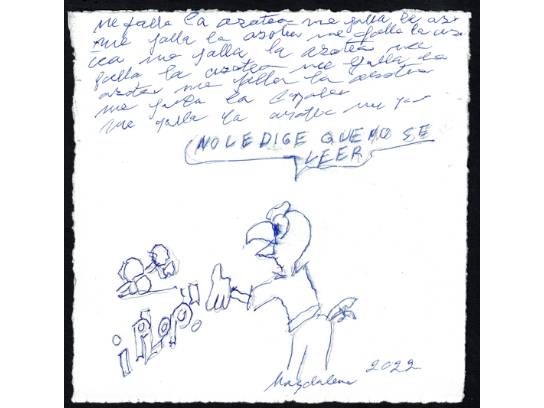 me falla la azotea me falla la az
me falla la azotea me falla la az
cea me falla la azotea me
falla la azotea me falla la
azotea me falla la azotea
me falla la
me falla la azotea me fa
NO LE DIGE QUE NO SE
LEER
¡PLOP!
Magdalena 2022